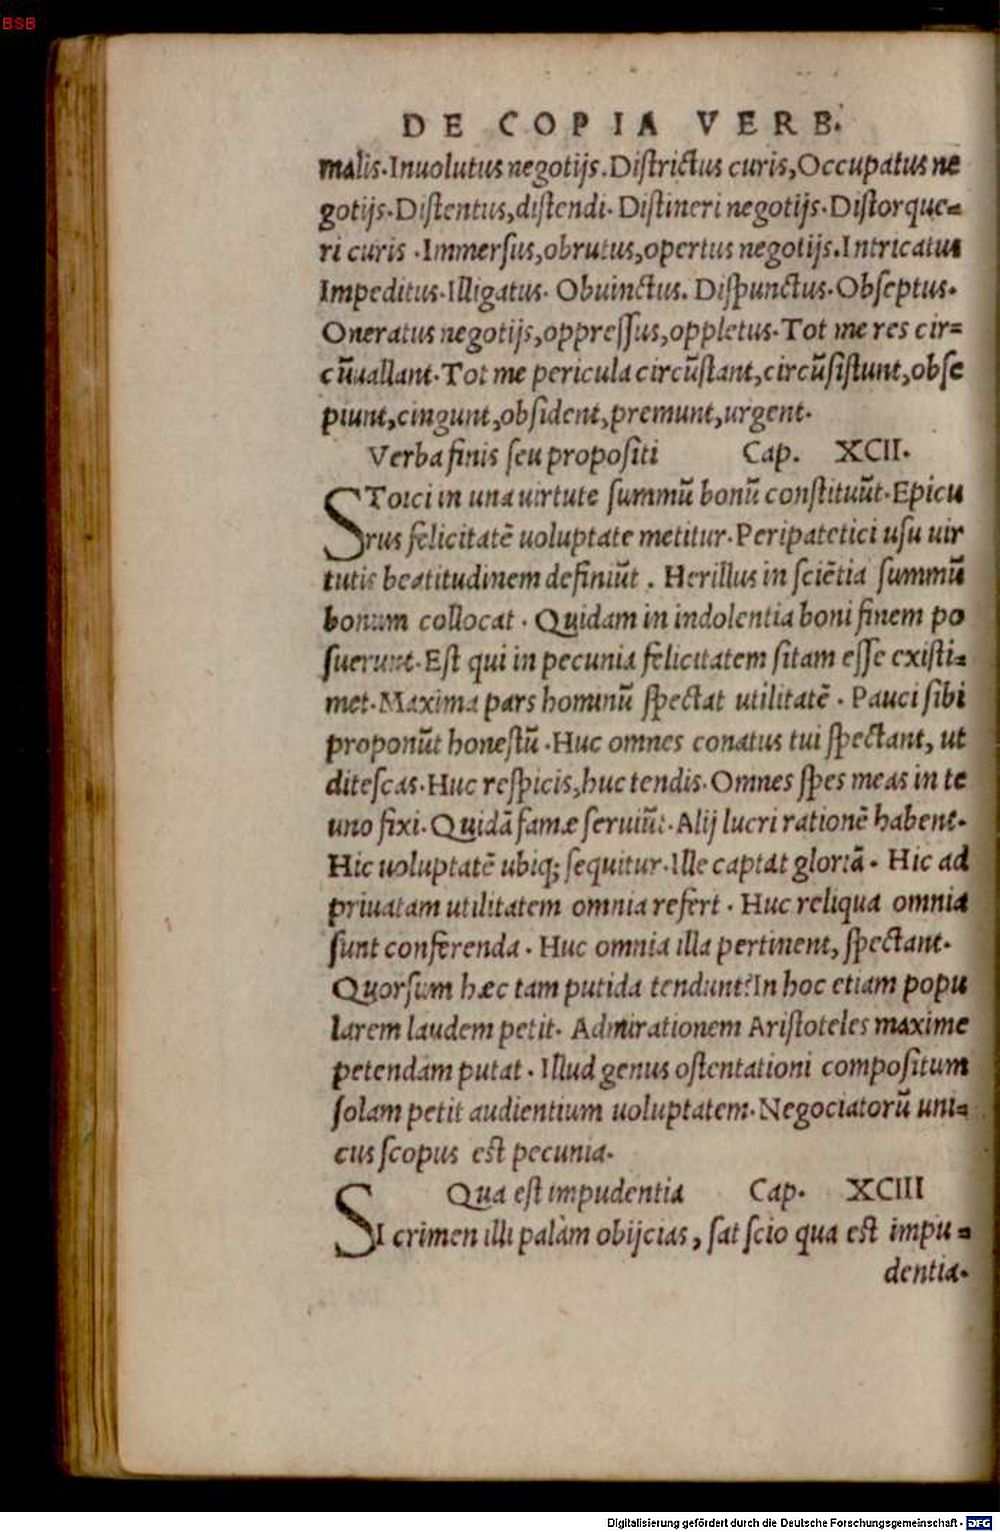 BSB
DE COPIA VERB.
malis. Inuolutus negotijs. Districtus curis, Occupatus ne
gotijs. Distentus, distendi. Distineri negotijs. Distorque=
ri curis . Immersus, obrutus, opertus negotijs. Intricatus
Impeditus. Illigatus. Obuinctus. Dispunctus. Obseptus.
Oneratus negotijs, oppressus, oppletus. Tot me res cir=
cũuallant. Tot me pericula circũstant, circũsistunt, obse
piunt, cingunt, obsident, premunt, urgent.
Verba finis seu propositi Cap. XCII.
SToici in una uirtute summũ bonũ constituũt. Epicu
rus felicitatẽ uoluptate metitur. Peripatetici usu uir
tutis beatitudinem definiũt . Herillus in sciẽtia summũ
bonum collocat . Quidam in indolentia boni finem po
suerunt. Est qui in pecunia felicitatem sitam esse existi=
met. Maxima pars hominũ spectat utilitatẽ . Pauci sibi
proponũt honestũ . Huc omnes conatus tui spectant, ut
ditescas. Huc respicis, huc tendis. Omnes spes meas in te
uno fixi. Quidã famæ seruiũt. Alij lucri rationẽ habent.
Hic uoluptatẽ ubiq; sequitur. Ille captat gloriã . Hic ad
priuatam utilitatem omnia refert . Huc reliqua omnia
sunt conferenda . Huc omnia illa pertinent, spectant.
Quorsum hæc tam putida tendunt? In hoc etiam popu
larem laudem petit. Admirationem Aristoteles maxime
petendam putat . Illud genus ostentationi compositum
solam petit audientium uoluptatem. Negociatorũ uni=
cus scopus est pecunia.
Qua est impudentia Cap. XCIII
SI crimen illi palàm obijcias, sat scio qua est impu=
dentia.
Digitalisierung gefördert durch die Deutsche Forschungsgemeinschaft - DFG